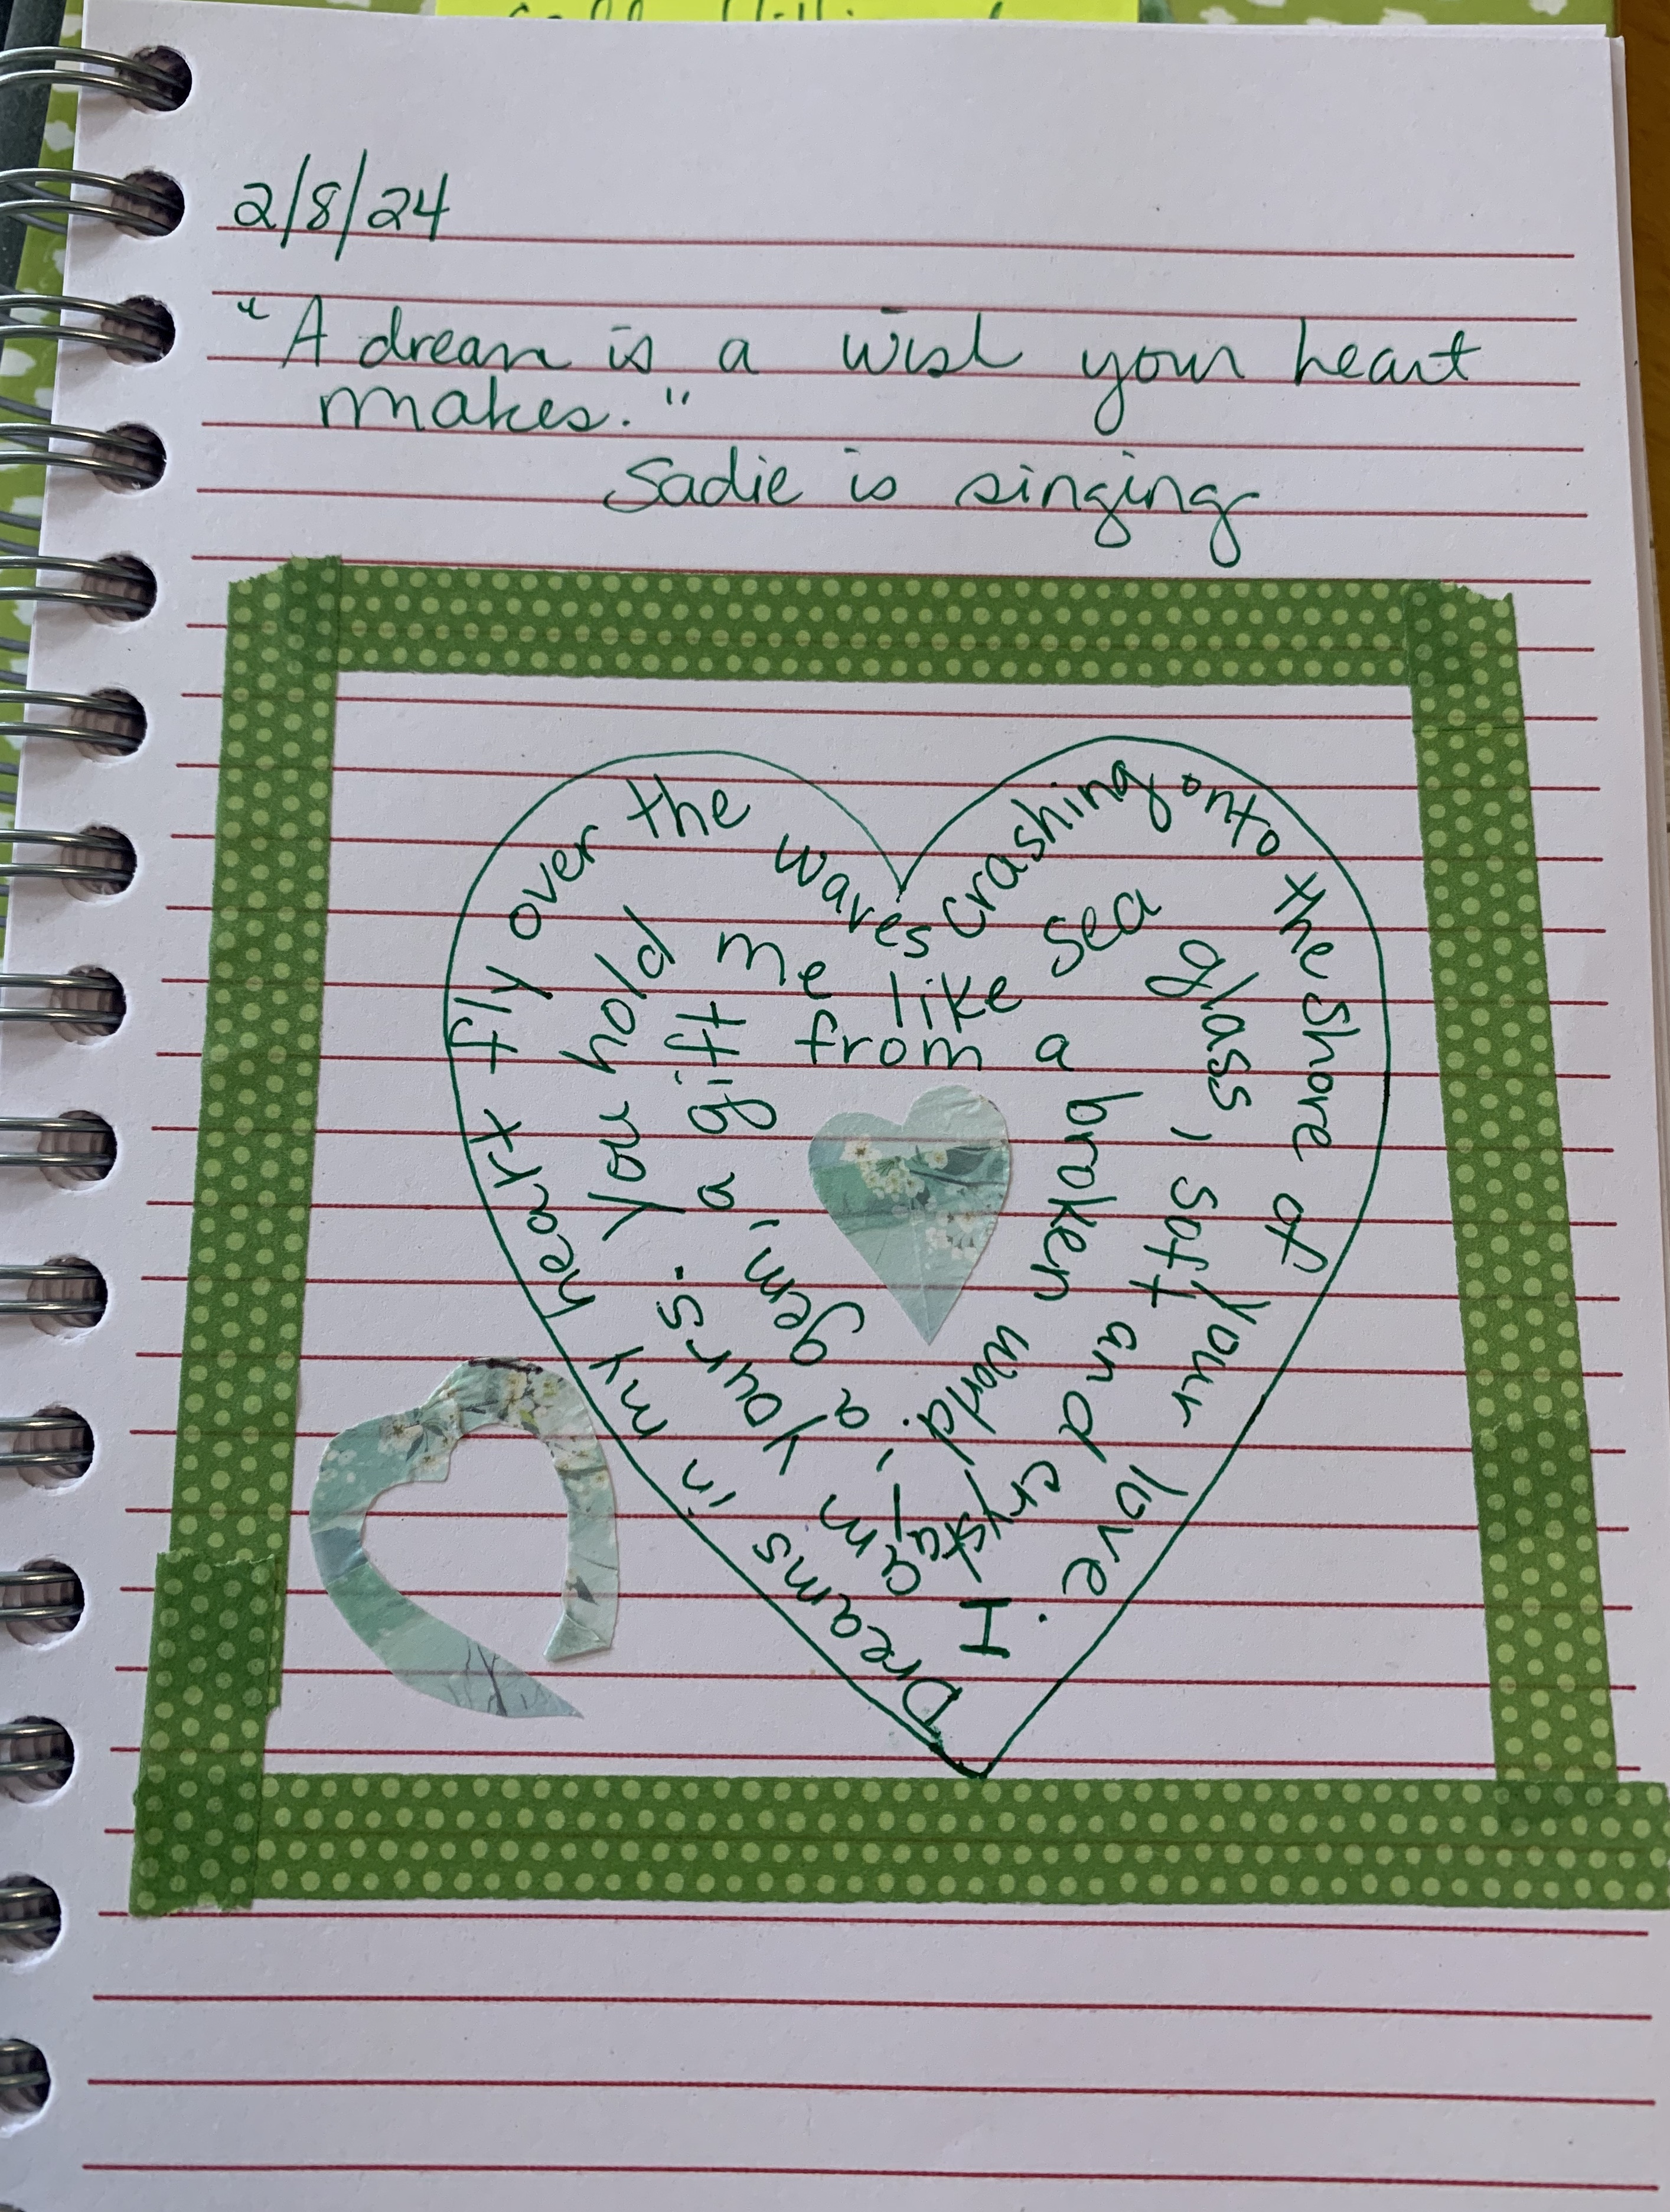 2/8/24
"A dream is a wish your heart
makes."
Sadie is singing
Dreams in my heart fly over the waves crashing onto the shore of your love. I am yours. You hold me like sea glass, soft and crystal, a gem, a gift from a broken world.